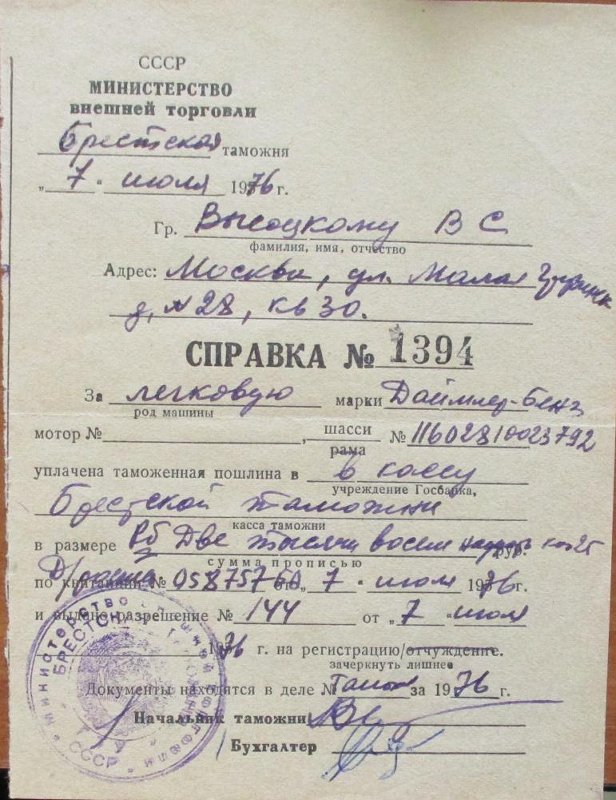 СССР
МИНИСТЕРСТВО
внешней торговли
Брестская таможня
„ 7 " июля 1976 г.
Гр. Высоцкому В С
фамилия, имя, отчество
Адрес: Москва, ул. Малая
д. №28, кв 30.
СПРАВКА № 1394
За легковую марки Даймлер-Бенз
род машины
мотор № , шасси № 11602810023792
рама
уплачена таможенная пошлина в в кассу
учреждение Госбанка,
Брестской таможни
касса таможни
в размере Рб Две тысячи восем руб.
сумма прописью
по квитанции № 0587576 от „ 7 " июля 1976 г.
и выдано разрешение № 144 от „ 7 " июля
1976 г. на регистрацию/отчуждение.
зачеркнуть лишнее
Документы находятся в деле № за 1976 г.
Начальник таможни
Бухгалтер
МИНИСТЕРСТВО
БРЕСТСКАЯ
СССР